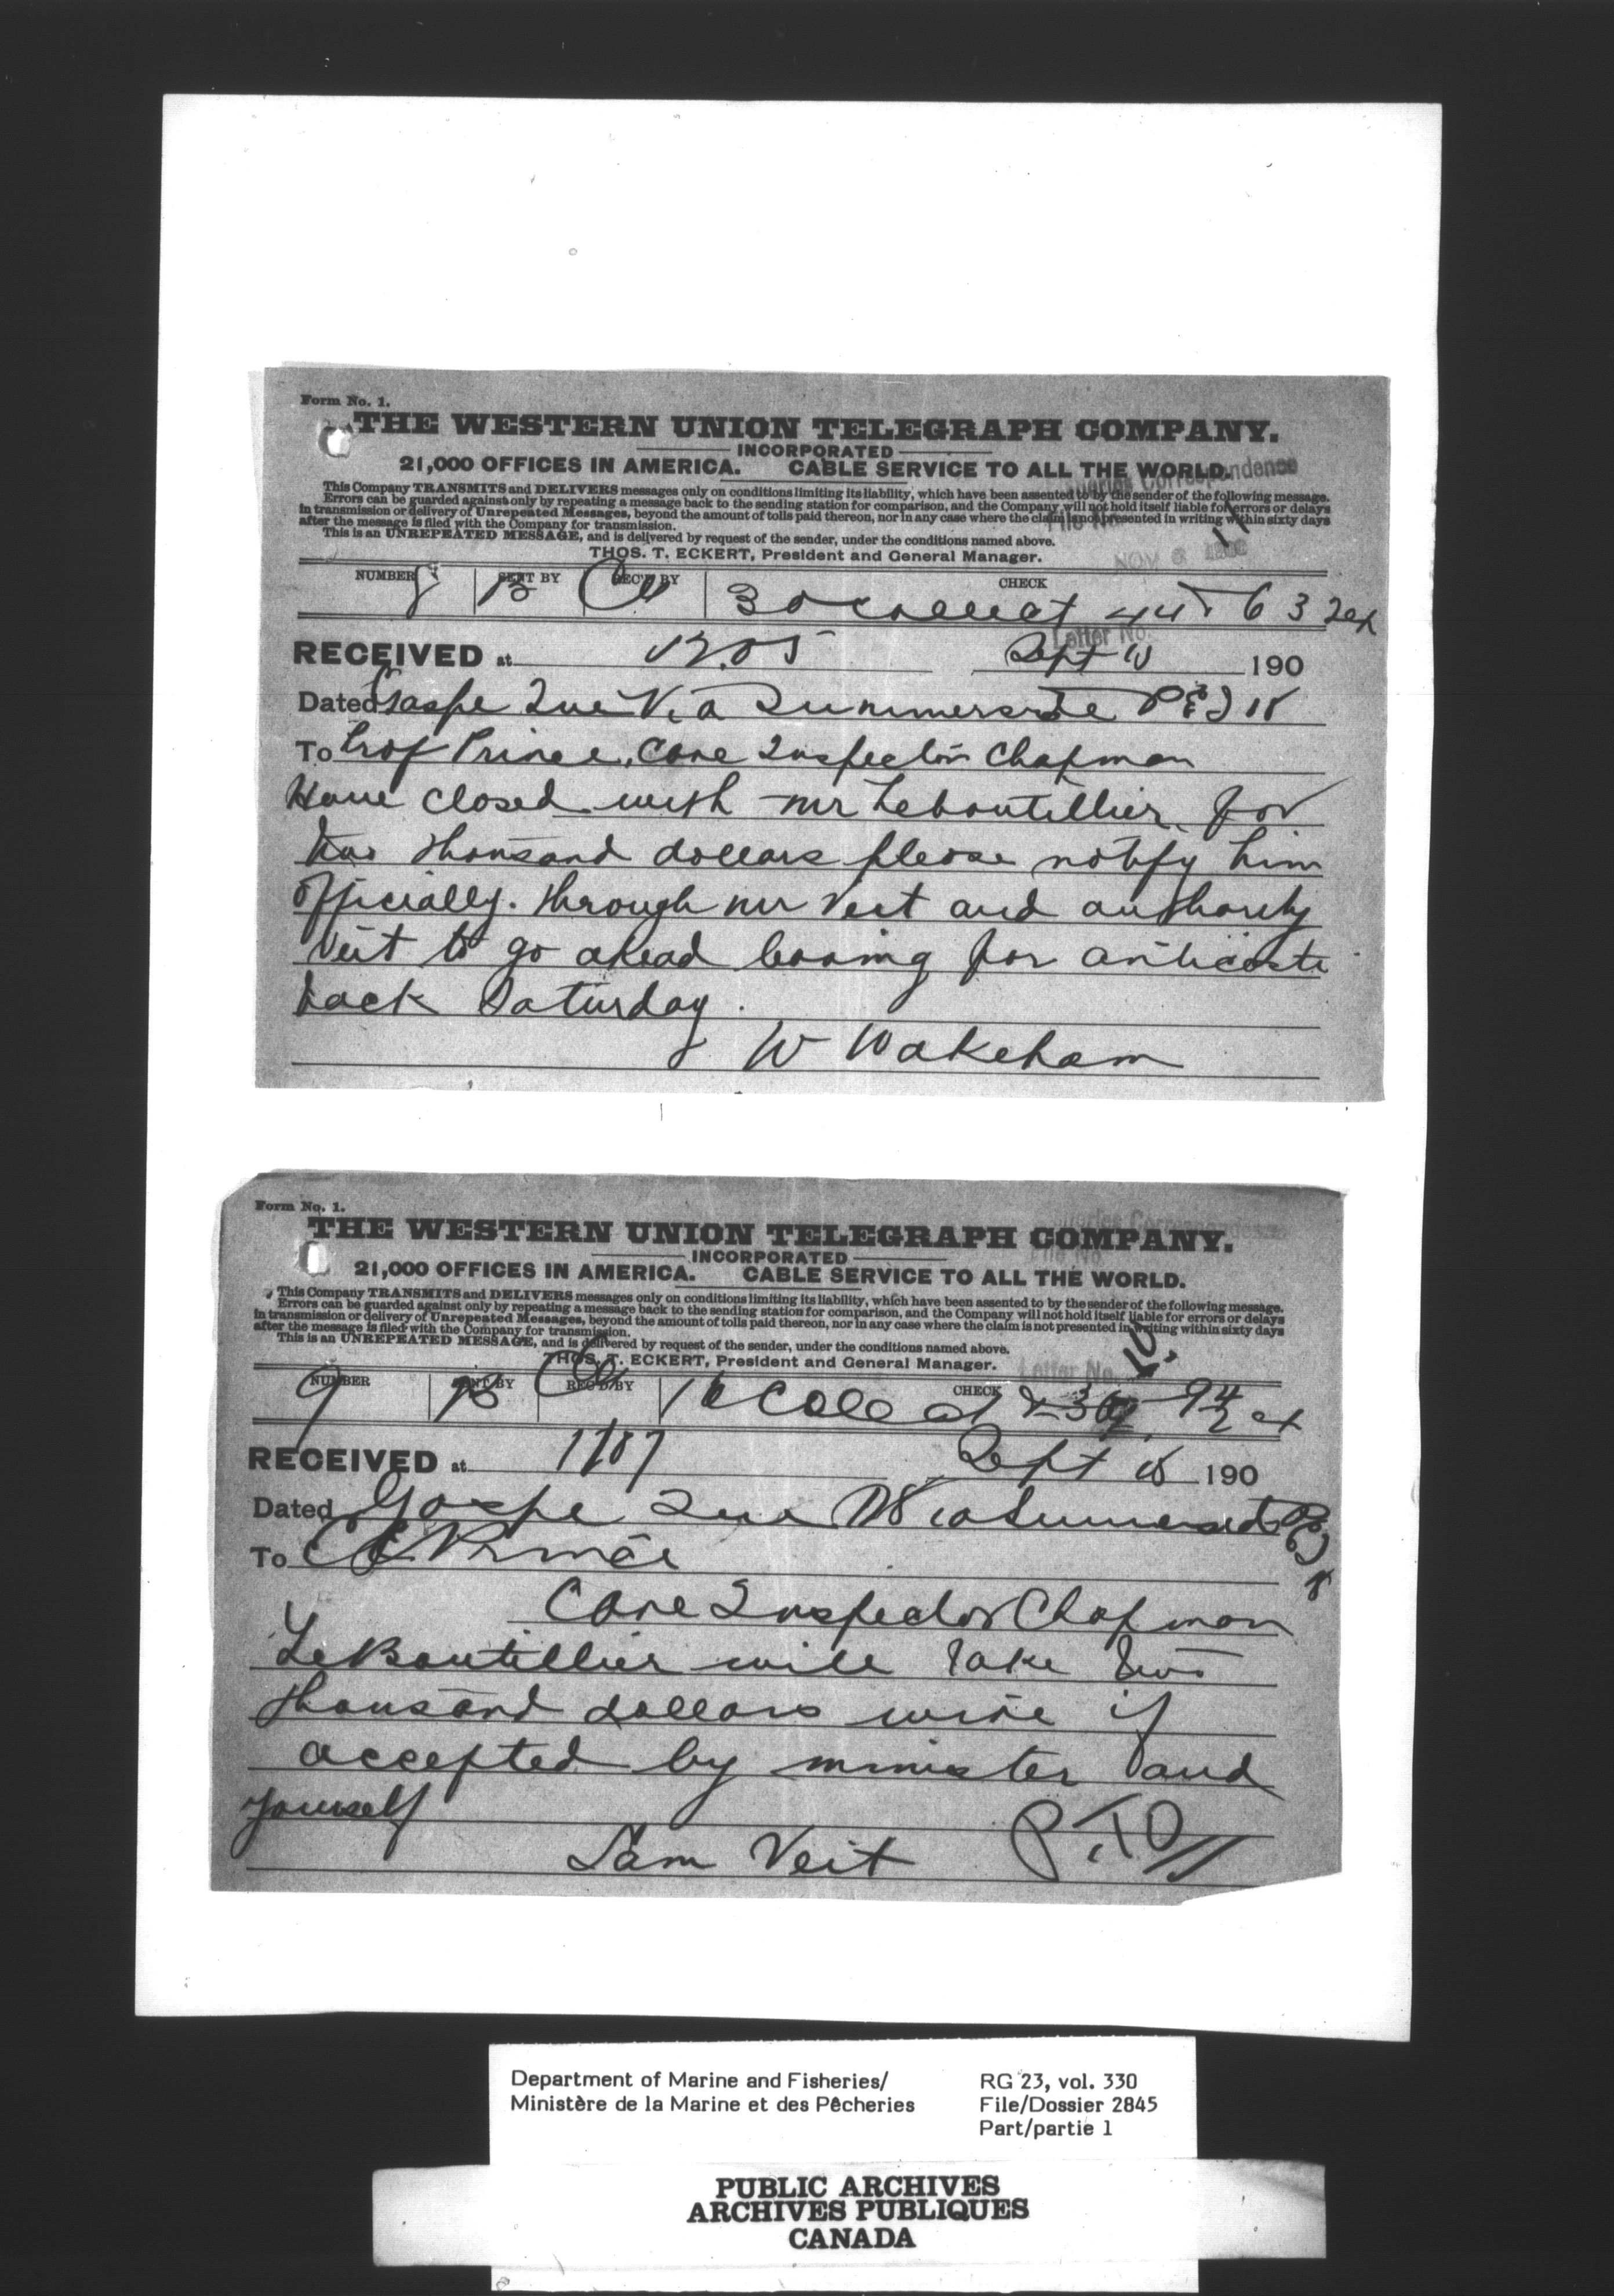 Form No. 1.
THE WESTERN UNION TELEGRAPH COMPANY.
INCORPORATED
21,000 OFFICES IN AMERICA. CABLE SERVICE TO ALL THE WORLD.
This Company TRANSMITS and DELIVERS messages only on conditions limiting its liability, which have been assented to by the sender of the following message.
Errors can be guarded against only by repeating a message back to the sending station for comparison, and the Company will not hold itself liable for errors or delays
in transmission or delivery of Unrepeated Messages, beyond the amount of tolls paid thereon, nor in any case where the claim is not presented in writing within sixty days
after the message is filed with the Company for transmission.
This is an UNREPEATED MESSAGE, and is delivered by request of the sender, under the conditions named above.
THOS. T. ECKERT, President and General Manager.
NOV 6
NUMBER SENT BY REC'D BY CHECK
8 B 30 collect 44 63 2ex
Letter No.
RECEIVED at 1205 Sept 18 190
Dated Gaspe Que Via Summerside PEI 18
To Prof Prince, Care Inspector Chapman
Have closed with mr Leboutillier for
two thousand dollars please notify him
officially. through mr Veit and authority
Veit to go ahead leaving for anticosti
back Saturday.
W Wakeham
Form No. 1.
THE WESTERN UNION TELEGRAPH COMPANY.
INCORPORATED
21,000 OFFICES IN AMERICA. CABLE SERVICE TO ALL THE WORLD.
This Company TRANSMITS and DELIVERS messages only on conditions limiting its liability, which have been assented to by the sender of the following message.
Errors can be guarded against only by repeating a message back to the sending station for comparison, and the Company will not hold itself liable for errors or delays
in transmission or delivery of Unrepeated Messages, beyond the amount of tolls paid thereon, nor in any case where the claim is not presented in writing within sixty days
after the message is filed with the Company for transmission.
This is an UNREPEATED MESSAGE, and is delivered by request of the sender, under the conditions named above.
THOS. T. ECKERT, President and General Manager.
Letter No.
NUMBER SENT BY REC'D BY CHECK
9 B Collect
RECEIVED at Sept 18 190
Dated Gaspe Que Via Summerside PEI 18
To E E Prince
Care Inspector Chapman
LeBoutillier will take two
thousand dollars wire if
accepted by minister and
yourself
Sam Veit P.T.O
Department of Marine and Fisheries/
Ministère de la Marine et des Pêcheries
RG 23, vol. 330
File/Dossier 2845
Part/partie 1
PUBLIC ARCHIVES
ARCHIVES PUBLIQUES
CANADA